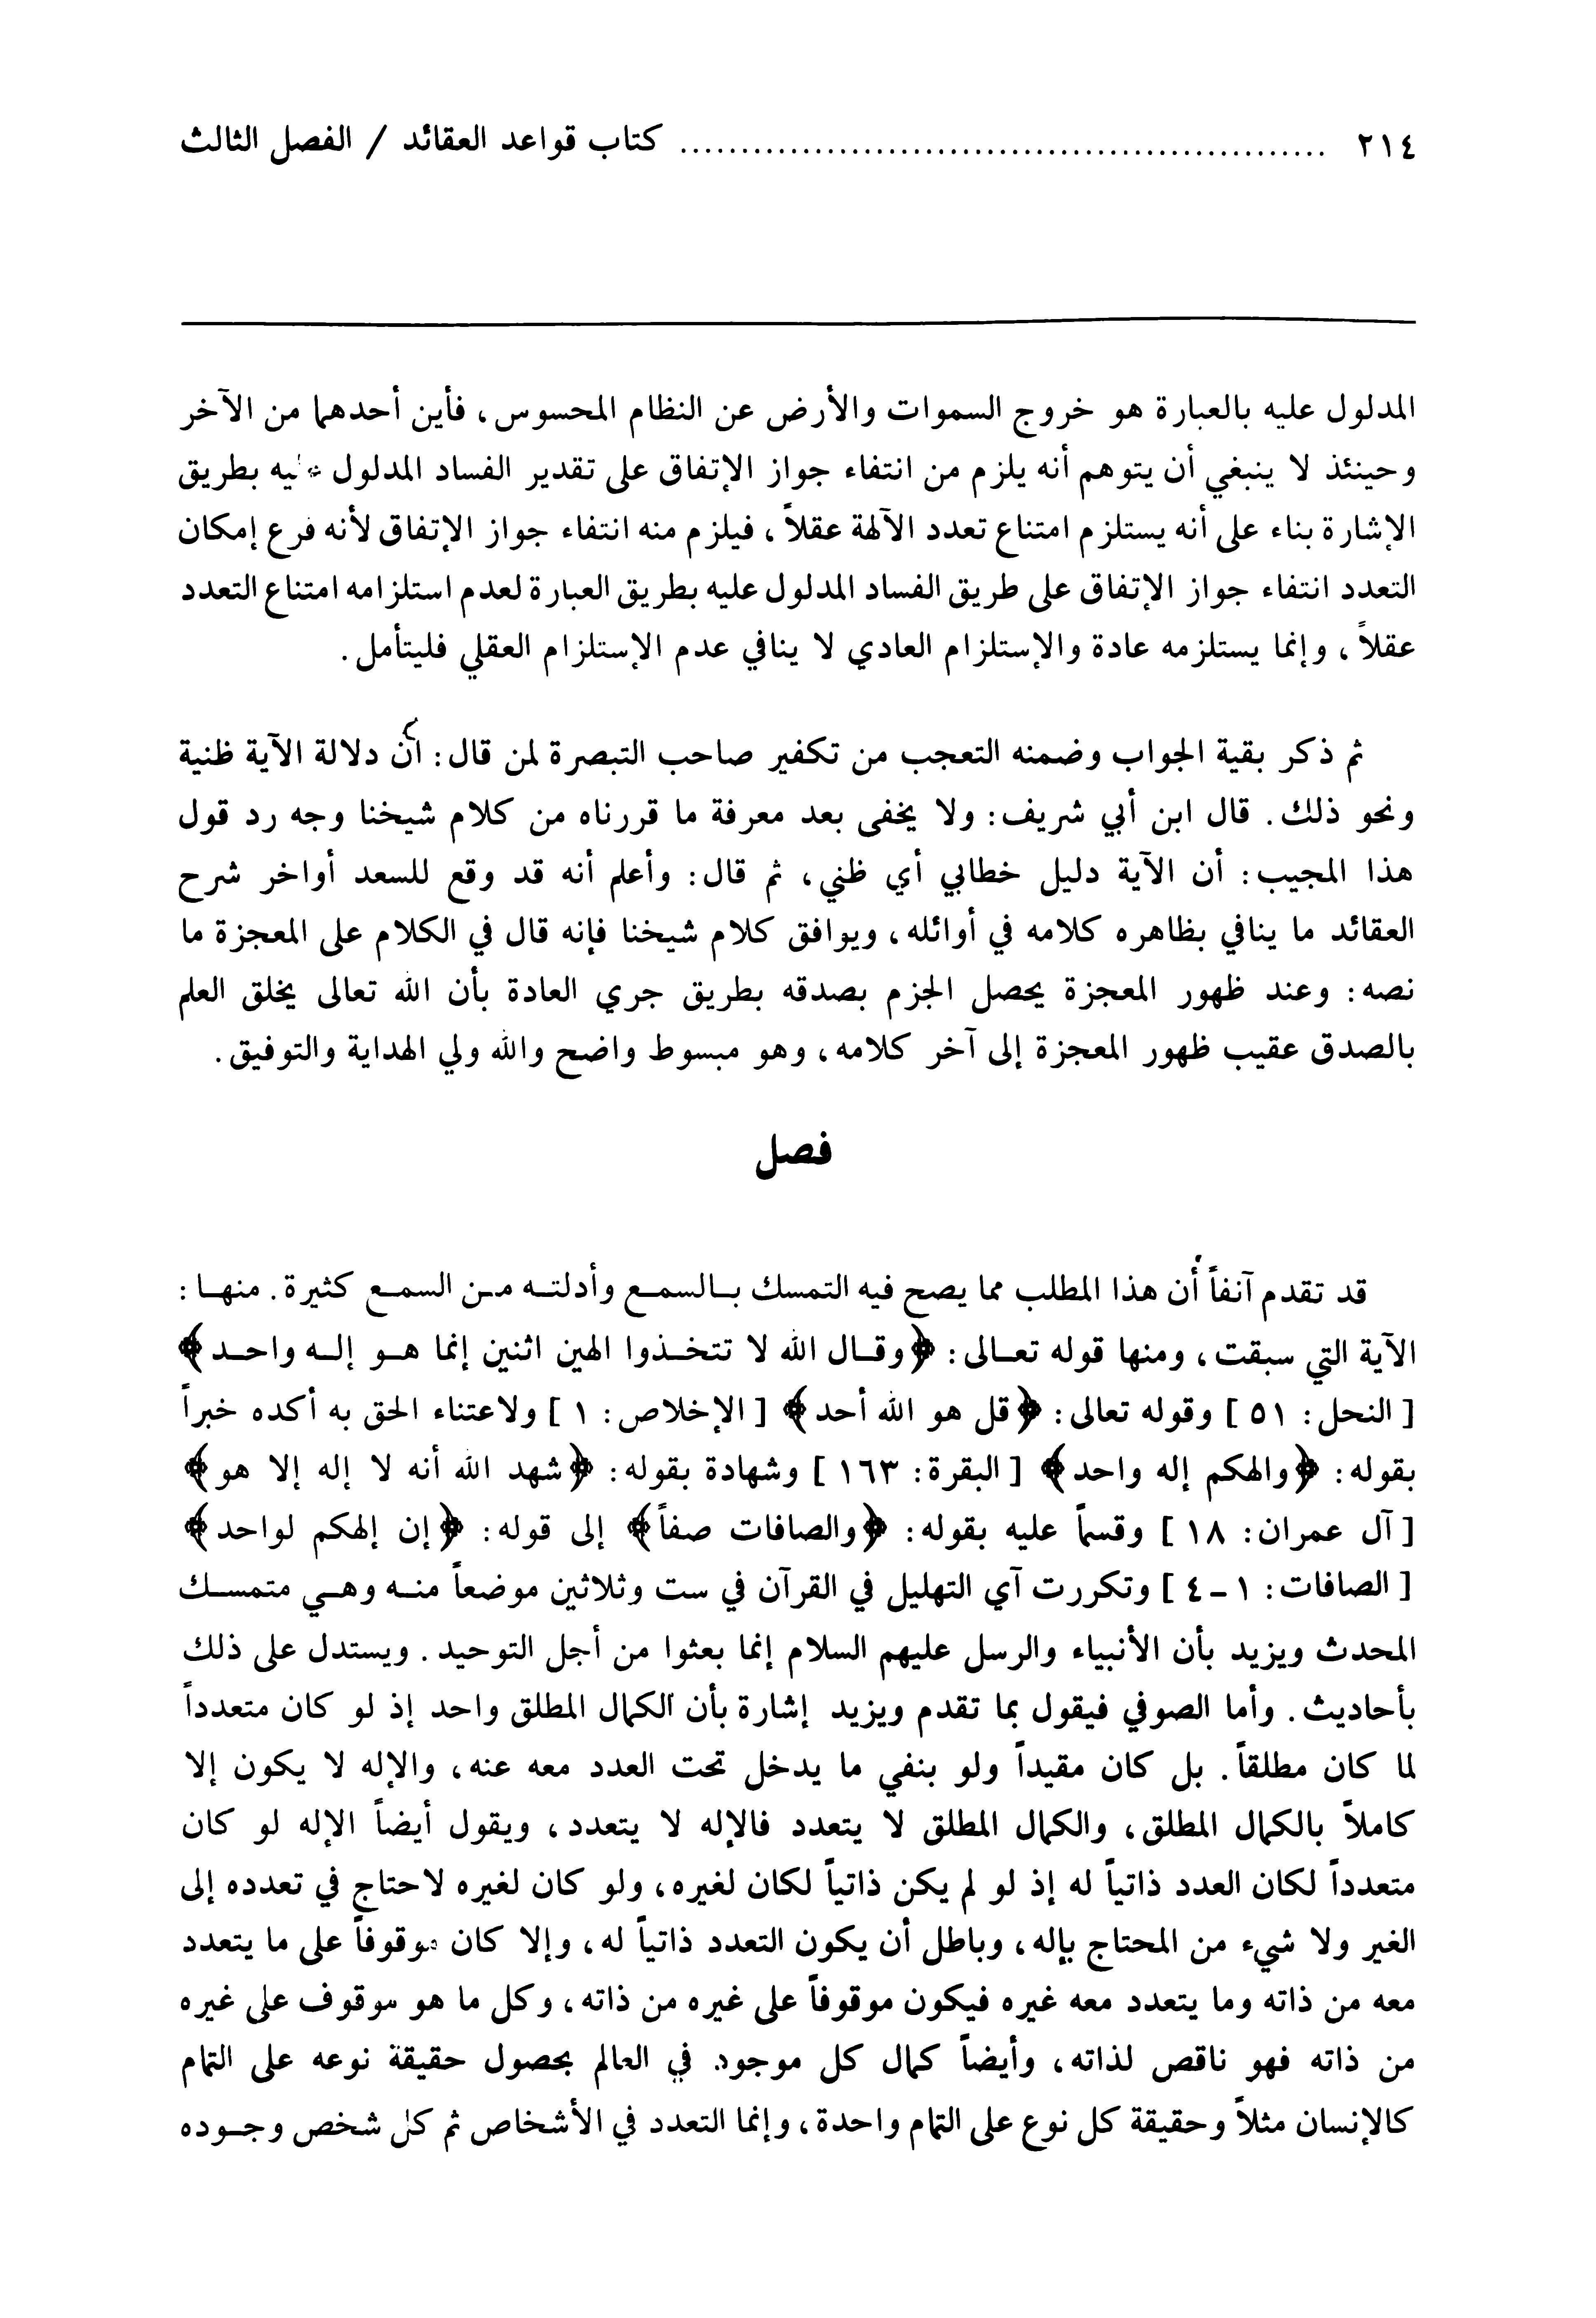 ٢١٤ ..................................................... كتاب قواعد العقائد / الفصل الثالث
المدلول عليه بالعبارة هو خروج السموات والأرض عن النظام المحسوس، فأين أحدهما من الآخر
وحينئذ لا ينبغي أن يتوهم أنه يلزم من انتفاء جواز الإتفاق على تقدير الفساد المدلول عليه بطريق
الإشارة بناء على أنه يستلزم امتناع تعدد الآلهة عقلاً، فيلزم منه انتفاء جواز الإتفاق لأنه فرع إمكان
التعدد انتفاء جواز الإتفاق على طريق الفساد المدلول عليه بطريق العبارة لعدم استلزامه امتناع التعدد
عقلاً، وإنما يستلزمه عادة والإستلزام العادي لا ينافي عدم الإستلزام العقلي فليتأمل.
ثم ذكر بقية الجواب وضمنه التعجب من تكفير صاحب التبصرة لمن قال: أن دلالة الآية ظنية
ونحو ذلك. قال ابن أبي شريف: ولا يخفى بعد معرفة ما قررناه من كلام شيخنا وجه رد قول
هذا المجيب: أن الآية دليل خطابي أي ظني، ثم قال: وأعلم أنه قد وقع للسعد أواخر شرح
العقائد ما ينافي بظاهره كلامه في أوائله، ويوافق كلام شيخنا فإنه قال في الكلام على المعجزة ما
نصه: وعند ظهور المعجزة يحصل الجزم بصدقه بطريق جري العادة بأن الله تعالى يخلق العلم
بالصدق عقيب ظهور المعجزة إلى آخر كلامه، وهو مبسوط واضح والله ولي الهداية والتوفيق.
فصل
قد تقدم آنفاً أن هذا المطلب مما يصح فيه التمسك بالسمع وأدلته من السمع كثيرة. منها:
الآية التي سبقت، ومنها قوله تعالى: ﴿وقال الله لا تتخذوا الهين اثنين إنما هو إله واحد﴾
[ النحل: ٥١ ] وقوله تعالى: ﴿قل هو الله أحد﴾ [ الإخلاص: ١ ] ولاعتناء الحق به أكده خبراً
بقوله: ﴿والهكم إله واحد﴾ [ البقرة: ١٦٣ ] وشهادة بقوله: ﴿شهد الله أنه لا إله إلا هو﴾
[ آل عمران: ١٨ ] وقسماً عليه بقوله: ﴿والصافات صفاً﴾ إلى قوله: ﴿إن إلهكم لواحد﴾
[ الصافات: ١ - ٤ ] وتكررت آي التهليل في القرآن في ست وثلاثين موضعاً منه وهي متمسك
المحدث ويزيد بأن الأنبياء والرسل عليهم السلام إنما بعثوا من أجل التوحيد. ويستدل على ذلك
بأحاديث. وأما الصوفي فيقول بما تقدم ويزيد إشارة بأن الكمال المطلق واحد إذ لو كان متعدداً
لما كان مطلقاً. بل كان مقيداً ولو بنفي ما يدخل تحت العدد معه عنه، والإله لا يكون إلا
كاملاً بالكمال المطلق، والكمال المطلق لا يتعدد فالإله لا يتعدد، ويقول أيضاً الإله لو كان
متعدداً لكان العدد ذاتياً له إذ لو لم يكن ذاتياً لكان لغيره، ولو كان لغيره لاحتاج في تعدده إلى
الغير ولا شيء من المحتاج بإله، وباطل أن يكون التعدد ذاتياً له، وإلا كان موقوفاً على ما يتعدد
معه من ذاته وما يتعدد معه غيره فيكون موقوفاً على غيره من ذاته، وكل ما هو موقوف على غيره
من ذاته فهو ناقص لذاته، وأيضاً كمال كل موجود في العالم بحصول حقيقة نوعه على التمام
كالإنسان مثلاً وحقيقة كل نوع على التمام واحدة، وإنما التعدد في الأشخاص ثم كل شخص وجوده